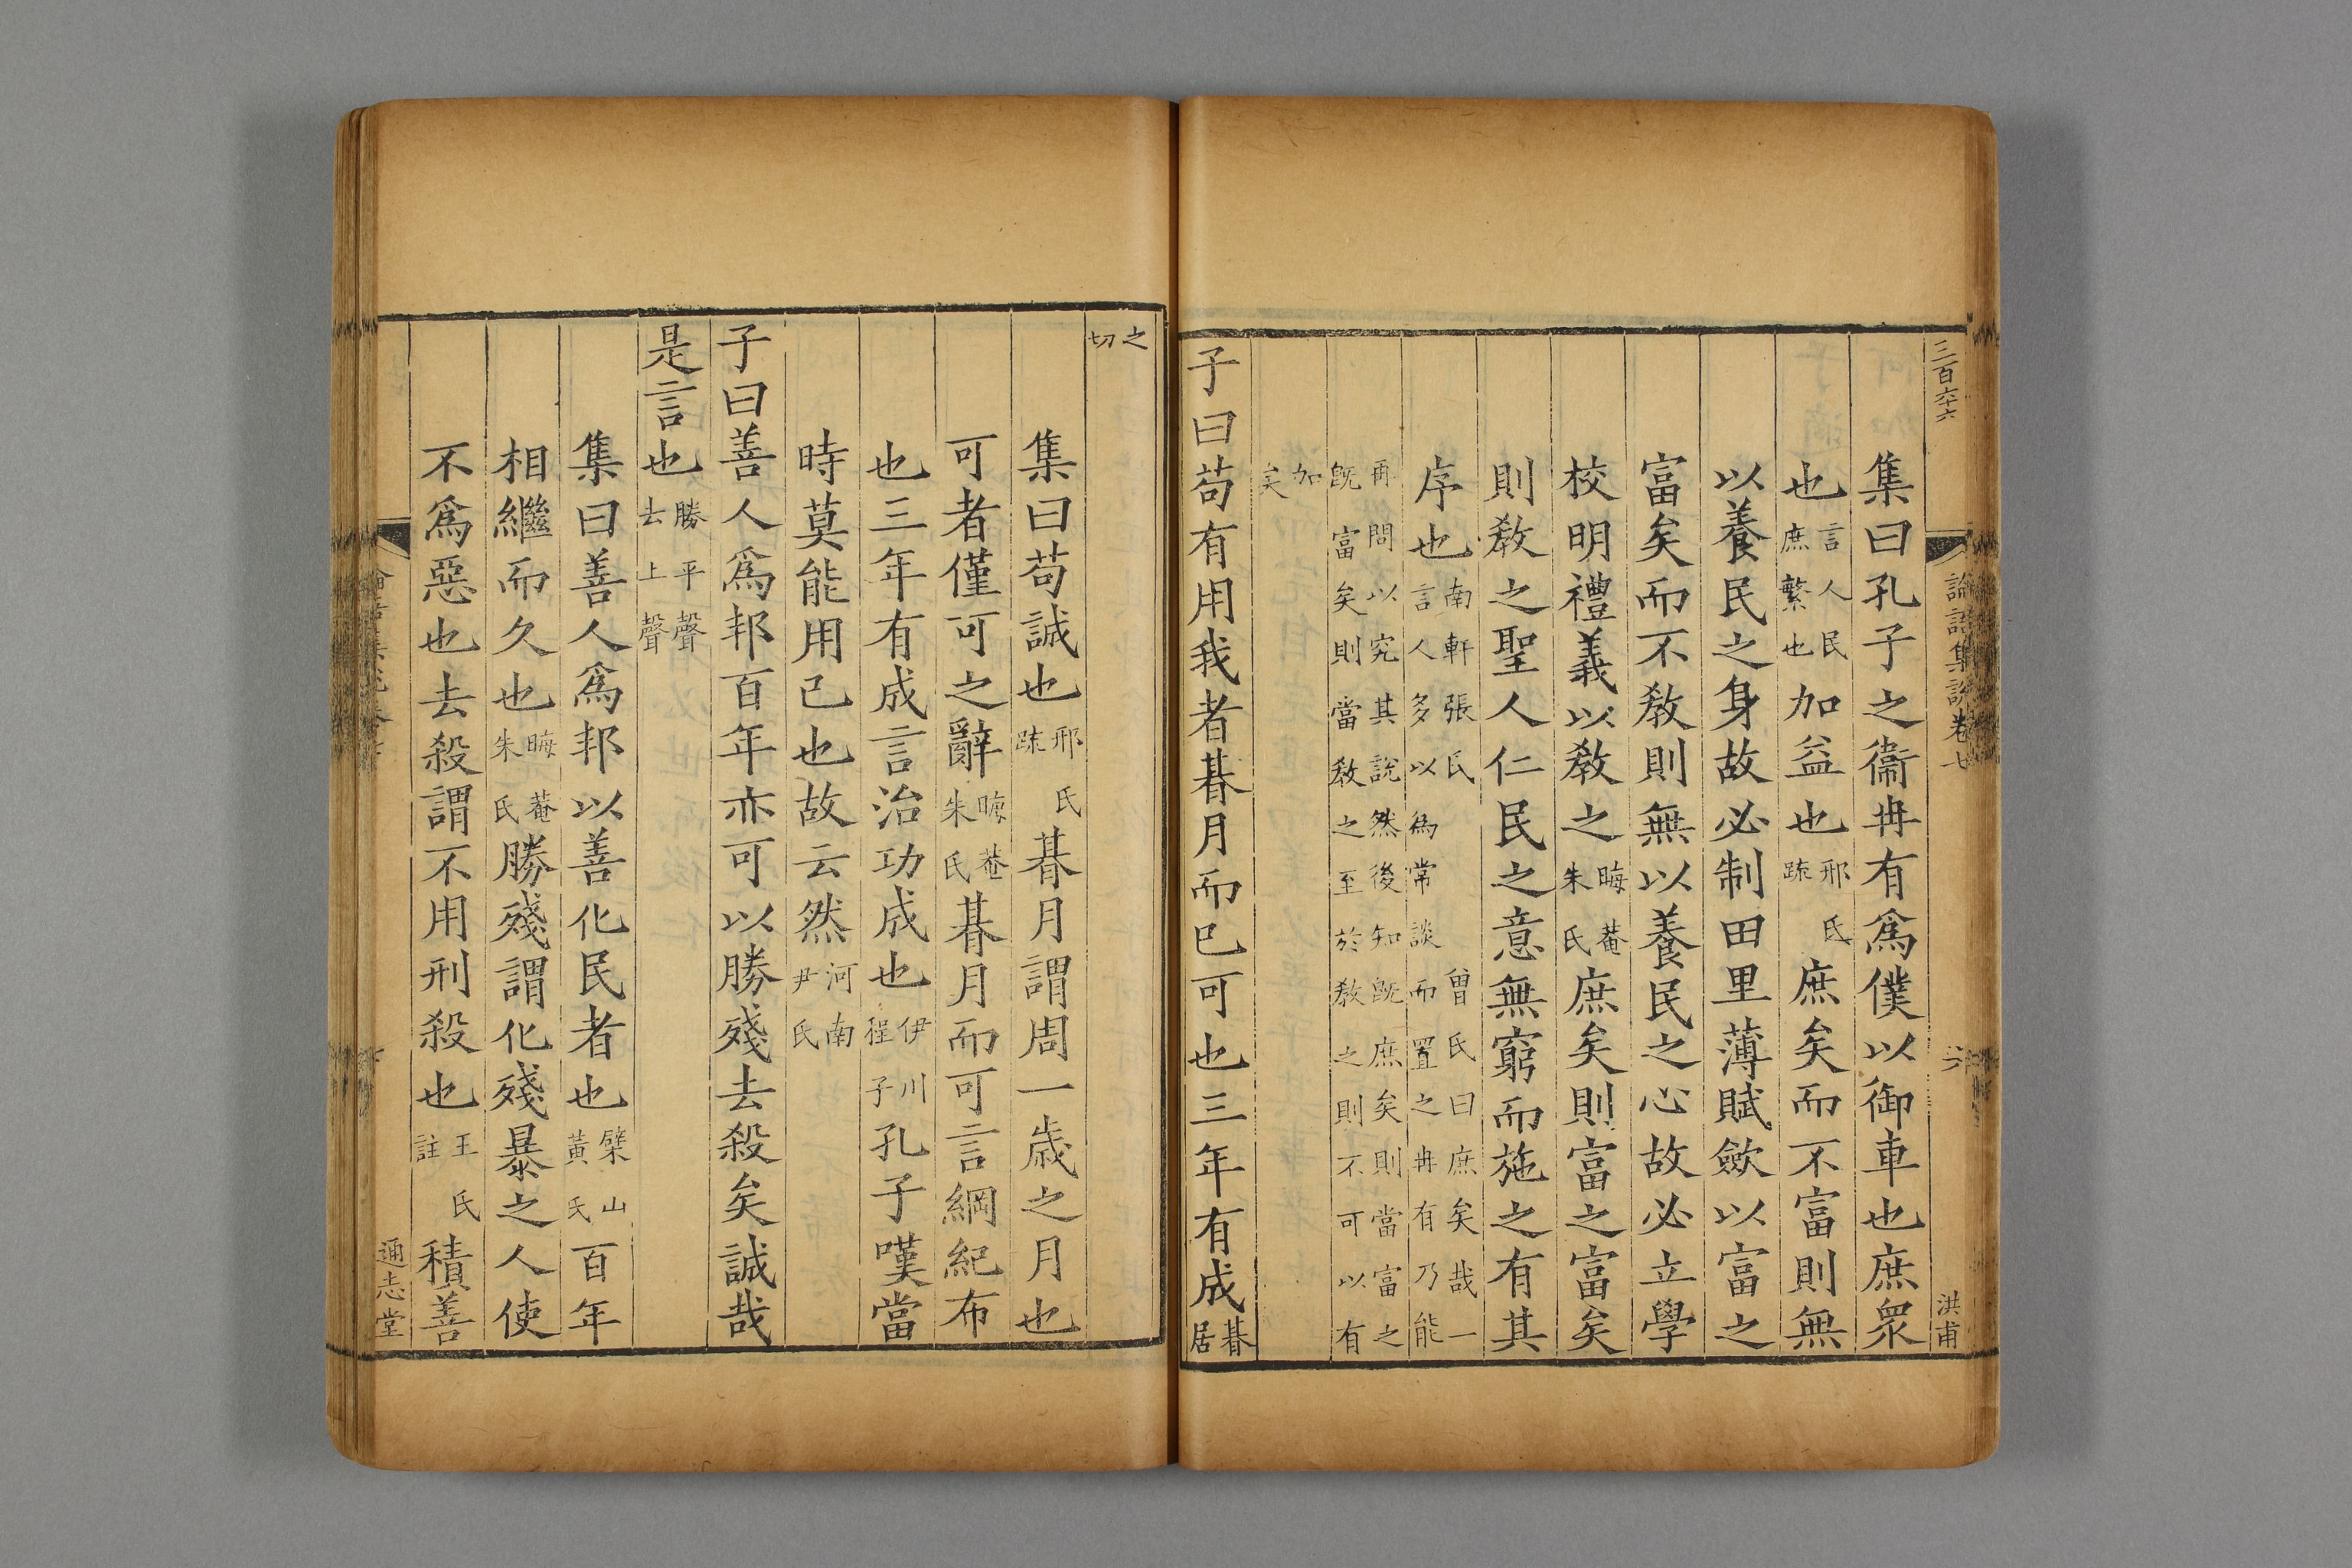 三百六十六
論語集說卷七
六
洪甫
集曰孔子之衞冉有爲僕以御車也庶衆
也言人民庶繁也加益也邢氏疏庶矣而不富則無
以養民之身故必制田里薄賦歛以富之
富矣而不敎則無以養民之心故必立學
校明禮義以敎之晦菴朱氏庶矣則富之富矣
則敎之聖人仁民之意無窮而施之有其
序也南軒張氏曾氏曰庶矣哉一言人多以為常談而置之冉有乃能
再問以究其說然後知旣庶矣則當富之旣富矣則當敎之至於敎之則不可以有
加矣
子曰苟有用我者朞月而已可也三年有成朞居
之切
集曰苟誠也邢氏疏朞月謂周一歲之月也
可者僅可之辭晦菴朱氏朞月而可言綱紀布
也三年有成言治功成也伊川程子孔子嘆當
時莫能用己也故云然河南尹氏
子曰善人爲邦百年亦可以勝殘去殺矣誠哉
是言也勝平聲去上聲
集曰善人爲邦以善化民者也檗山黃氏百年
相繼而久也晦菴朱氏勝殘謂化殘暴之人使
不爲惡也去殺謂不用刑殺也王氏註積善
通志堂